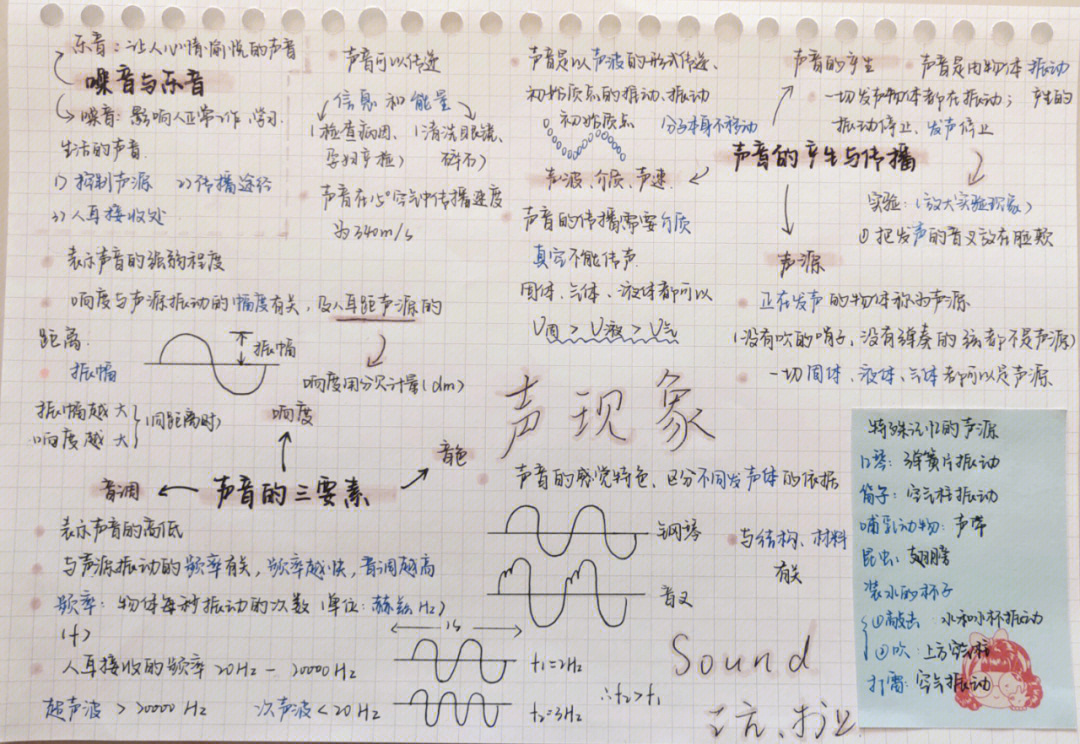 乐音：让人心情愉悦的声音
噪音与乐音
噪音：影响人正常工作、学习、
生活的声音.
1）控制声源 2）传播途径
3）人耳接收处
声音可以传递
信息和能量
（检查病因、
孕妇产检）
（清洗眼镜、
碎石）
声音在15°空气中传播速度
为340m/s
声音是以声波的形式传递、
初始质点的振动、振动
初始质点 （分子本身不移动
声波、介质、声速.
声音的传播需要介质
真空不能传声.
固体、气体、液体都可以
V固>V液>V气
声音的产生
声音是由物体振动
产生的
一切发声物体都在振动；
振动停止、发声停止
声音的产生与传播
实验：（放大实验现象）
①把发声的音叉放在脸颊
声源
正在发声的物体称为声源
（没有吹的哨子，没有弹奏的弦都不是声源）
一切固体、液体、气体都可以是声源
表示声音的强弱程度
响度与声源振动的幅度有关，及人耳距声源的
距离.
振幅
振幅
响度用分贝计量(dm)
振幅越大
响度越大
（同距离时）
响度
声现象
音色
音调
声音的三要素
声音的感觉特色，区分不同发声体的依据
钢琴
音叉
与结构、材料
有关
表示声音的高低
与声源振动的频率有关，频率越快，音调越高
频率：物体每秒振动的次数（单位：赫兹Hz）
(f)
1s
人耳接收的频率 20Hz-20000Hz
超声波 >20000Hz 次声波<20Hz
f₁=2Hz
f₂=3Hz
∴f₂>f₁
Sound
特殊记忆的声源
口琴：弹簧片振动
笛子：空气柱振动
哺乳动物：声带
昆虫：翅膀
装水的杯子
①敲击：水和水杯振动
②吹：上方空气柱
打雷：空气振动